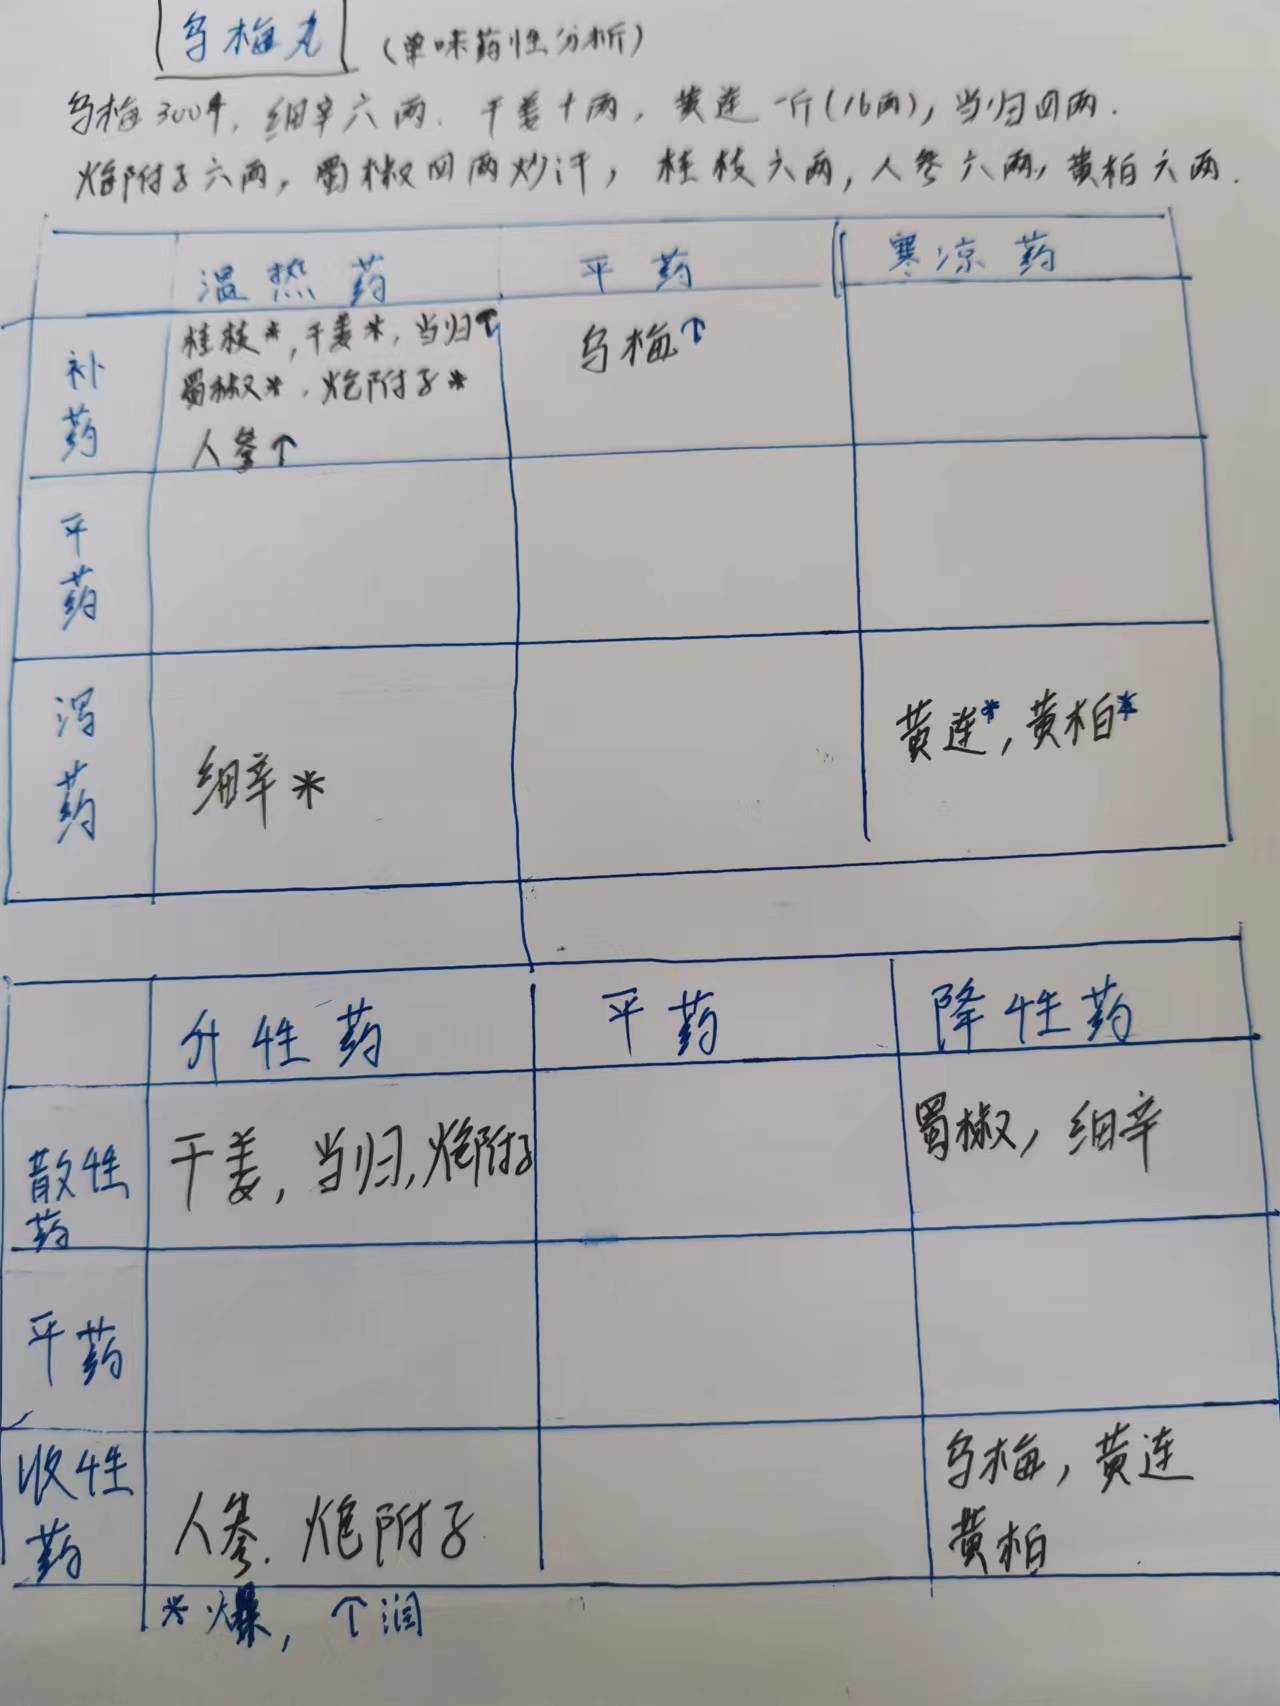 乌梅丸 (单味药性分析)
乌梅300个, 细辛六两. 干姜十两, 黄连一斤(16两), 当归四两.
炮附子六两, 蜀椒四两炒汗, 桂枝六两, 人参六两, 黄柏六两.
温热药 平药 寒凉药
补药
桂枝*, 干姜*, 当归↑
蜀椒*, 炮附子*
人参↑
乌梅↑
平药
泻药
细辛*
黄连*, 黄柏*
升性药 平药 降性药
散性药
干姜, 当归, 炮附子
蜀椒, 细辛
平药
收性药
人参. 炮附子
乌梅, 黄连
黄柏
*燥, ↑润